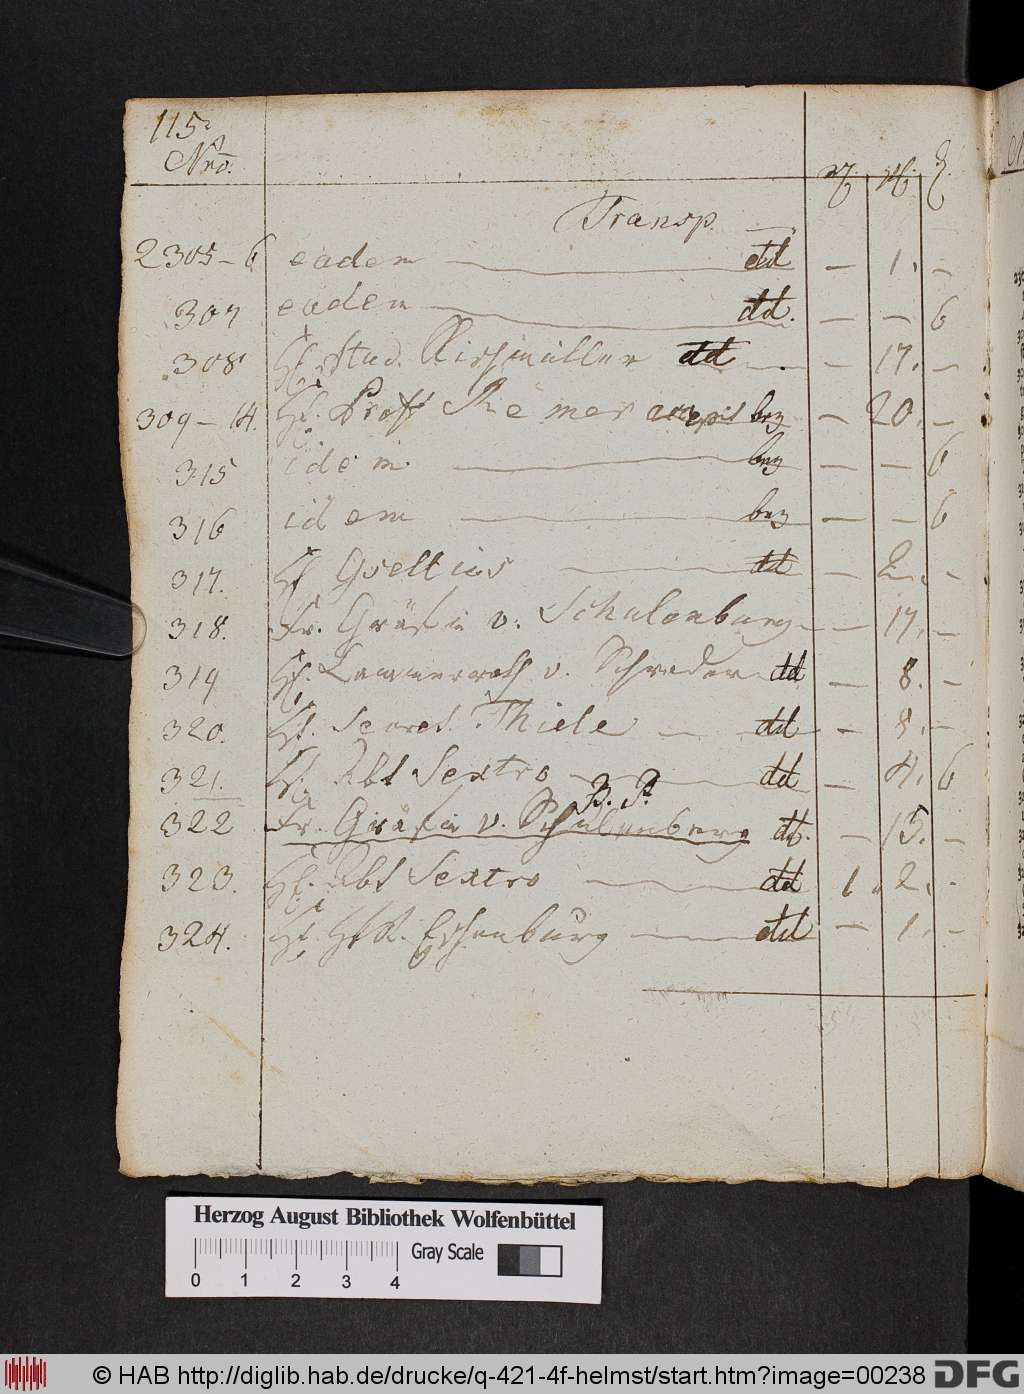 115
Nro.
Transp.
2305-6 eadem — dd — 1. —
307 eadem — dd. — — 6
308 H. Stud. dd — 17. —
309-14. H. Prof Remer accepit bez — 20. —
315 idem — bez — — 6
316 idem — bez — — 6
317. H Gseltius — dd — 2. —
318. Fr. Gräfin v. Schulenburg — — 17. —
319 H. Cammerrath v. Schrader dd — 8. —
320. H. Secret. Thiele — dd — 8. —
321. H. Abt Sextro — dd — 4. 6
B. P.
322 Fr. Gräfin v. Schulenberg dd. — 15. —
323. H. Abt Sextro — dd 1 2. —
324. H. HR. Eschenburg — dd — 1. —
Herzog August Bibliothek Wolfenbüttel
Gray Scale
0 1 2 3 4
© HAB http://diglib.hab.de/drucke/q-421-4f-helmst/start.htm?image=00238 DFG